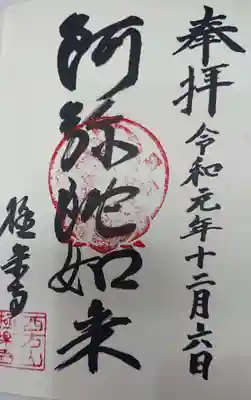 奉拝 令和元年十二月六日
阿弥陀如来
極楽寺